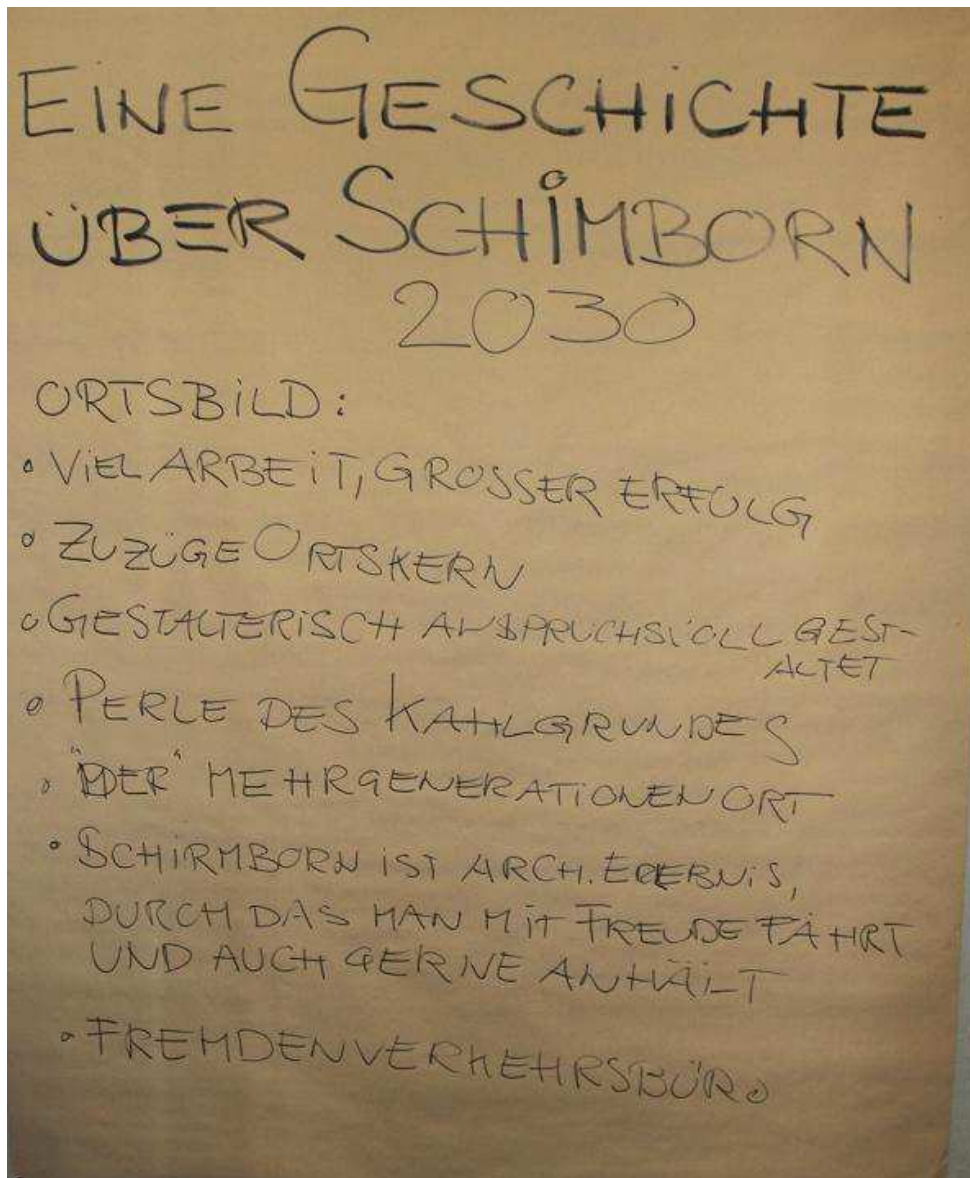 EINE GESCHICHTE
ÜBER SCHIMBORN
2030
ORTSBILD:
• VIEL ARBEIT, GROSSER ERFOLG
• ZUZÜGE ORTSKERN
• GESTALTERISCH ANSPRUCHSVOLL GEST-
ALTET
• PERLE DES KAHLGRUNDES
• "DER" MEHRGENERATIONENORT
• SCHIRMBORN IST ARCH. ERLEBNIS,
DURCH DAS MAN MIT FREUDE FÄHRT
UND AUCH GERNE ANHÄLT
• FREMDENVERKEHRSBÜRO